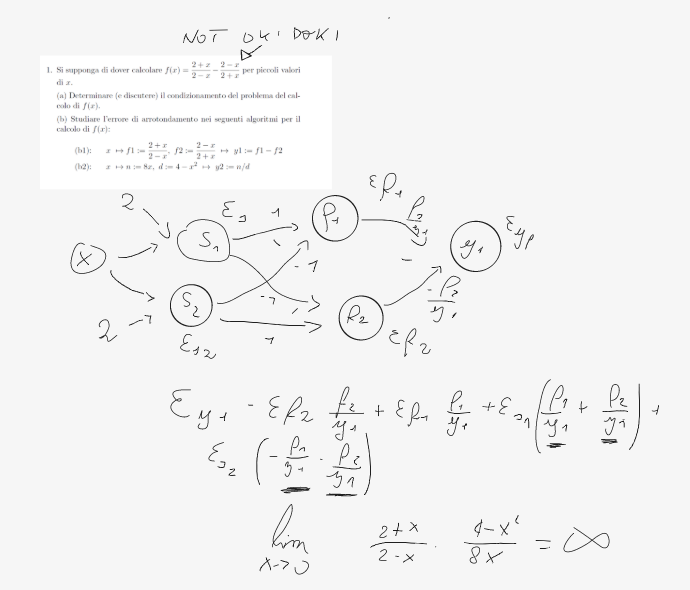 NOT OK' DOKI
1. Si supponga di dover calcolare f(x) = \frac{2+x}{2-x} - \frac{2-x}{2+x} per piccoli valori
di x.
(a) Determinare (e discutere) il condizionamento del problema del cal-
colo di f(x).
(b) Studiare l'errore di arrotondamento nei seguenti algoritmi per il
calcolo di f(x):
(b1): x ↦ f1 := \frac{2+x}{2-x}, f2 := \frac{2-x}{2+x} ↦ y1 := f1 − f2
(b2): x ↦ n := 8x, d := 4 − x² ↦ y2 := n/d
2 ε_{s1} 1 f_1 ε_{f1} \frac{f_1}{y_1} y_1 ε_{y1}
x S_1 -1 -
2 S_2 -1 f_2 -\frac{f_2}{y_1}
ε_{s2} 1 ε_{f2}
ε_{y1} - ε_{f2} \frac{f_2}{y_1} + ε_{f1} \frac{f_1}{y_1} + ε_{s1} (\frac{f_1}{y_1} + \frac{f_2}{y_1}) +
ε_{s2} (-\frac{f_1}{y_1} - \frac{f_2}{y_1})
lim_{x→0} \frac{2+x}{2-x} · \frac{4-x²}{8x} = ∞